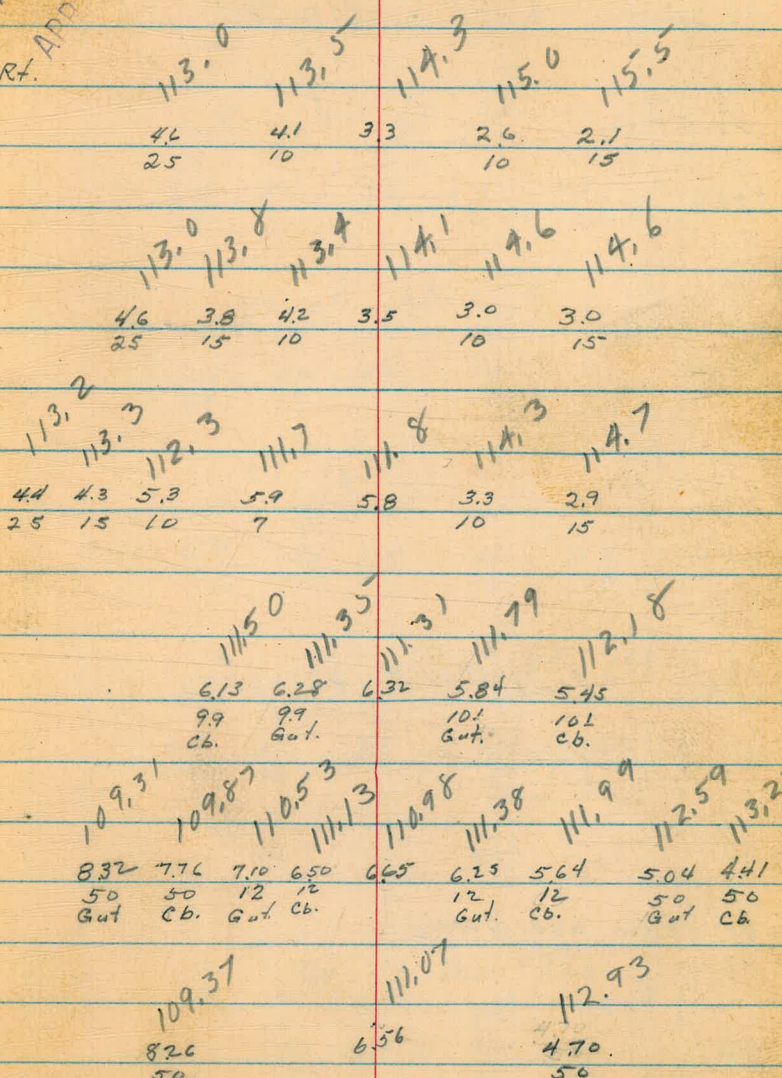 APP
Rt.
113.0 113.5 114.3 115.0 115.5
4.6 4.1 3.3 2.6 2.1
25 10 10 15
113.0 113.8 113.4 114.1 114.6 114.6
4.6 3.8 4.2 3.5 3.0 3.0
25 15 10 10 15
113.2 113.3 112.3 111.7 111.8 114.3 114.7
4.4 4.3 5.3 5.9 5.8 3.3 2.9
25 15 10 7 10 15
111.50 111.35 111.31 111.79 112.18
6.13 6.28 6.32 5.84 5.45
9.9 9.9 10.1 10.1
Cb. Gut. Gut. Cb.
109.31 109.87 110.53 111.13 110.98 111.38 111.99 112.59 113.2
8.32 7.76 7.10 6.50 6.65 6.25 5.64 5.04 4.41
50 50 12 12 12 12 50 50
Gut Cb. Gut Cb. Gut. Cb. Gut Cb.
109.37 111.07 112.93
8.26 6.56 4.70
50 50